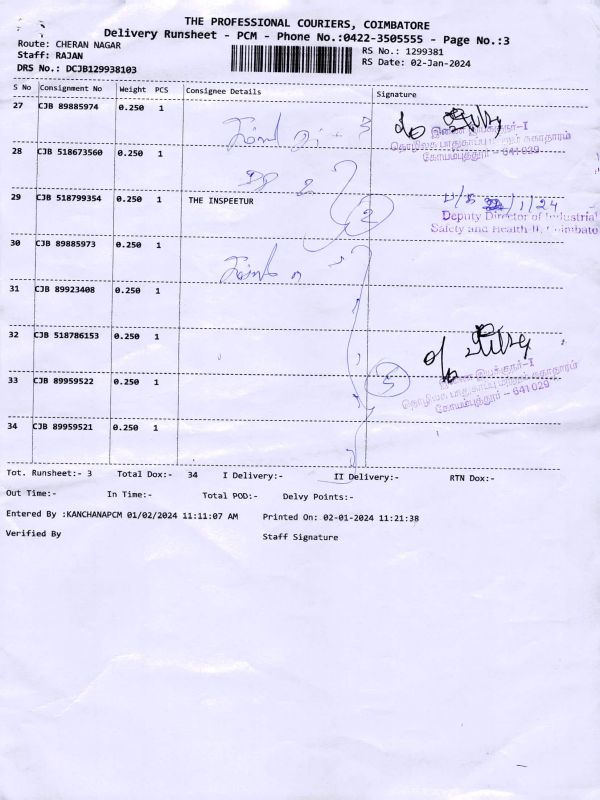 THE PROFESSIONAL COURIERS, COIMBATORE
Delivery Runsheet - PCM - Phone No.:0422-3505555 - Page No.:3
Route: CHERAN NAGAR
RS No.: 1299381
Staff: RAJAN
RS Date: 02-Jan-2024
DRS No.: DCJB129938103
S No Consignment No Weight PCS Consignee Details Signature
27 CJB 89885974 0.250 1
இணை இயக்குநர்-I
தொழிலக பாதுகாப்பு மற்றும் சுகாதாரம்
கோயம்புத்தூர் - 641 029
28 CJB 518673560 0.250 1
29 CJB 518799354 0.250 1 THE INSPEETUR
2
/1/24
Deputy Director of Industrial
Safety and Health II, Coimbato
30 CJB 89885973 0.250 1
31 CJB 89923408 0.250 1
32 CJB 518786153 0.250 1
இணை இயக்குநர்-I
தொழிலக பாதுகாப்பு மற்றும் சுகாதாரம்
கோயம்புத்தூர் - 641 029
33 CJB 89959522 0.250 1
5
34 CJB 89959521 0.250 1
Tot. Runsheet:- 3 Total Dox:- 34 I Delivery:- II Delivery:- RTN Dox:-
Out Time:- In Time:- Total POD:- Delvy Points:-
Entered By :KANCHANAPCM 01/02/2024 11:11:07 AM Printed On: 02-01-2024 11:21:38
Verified By Staff Signature